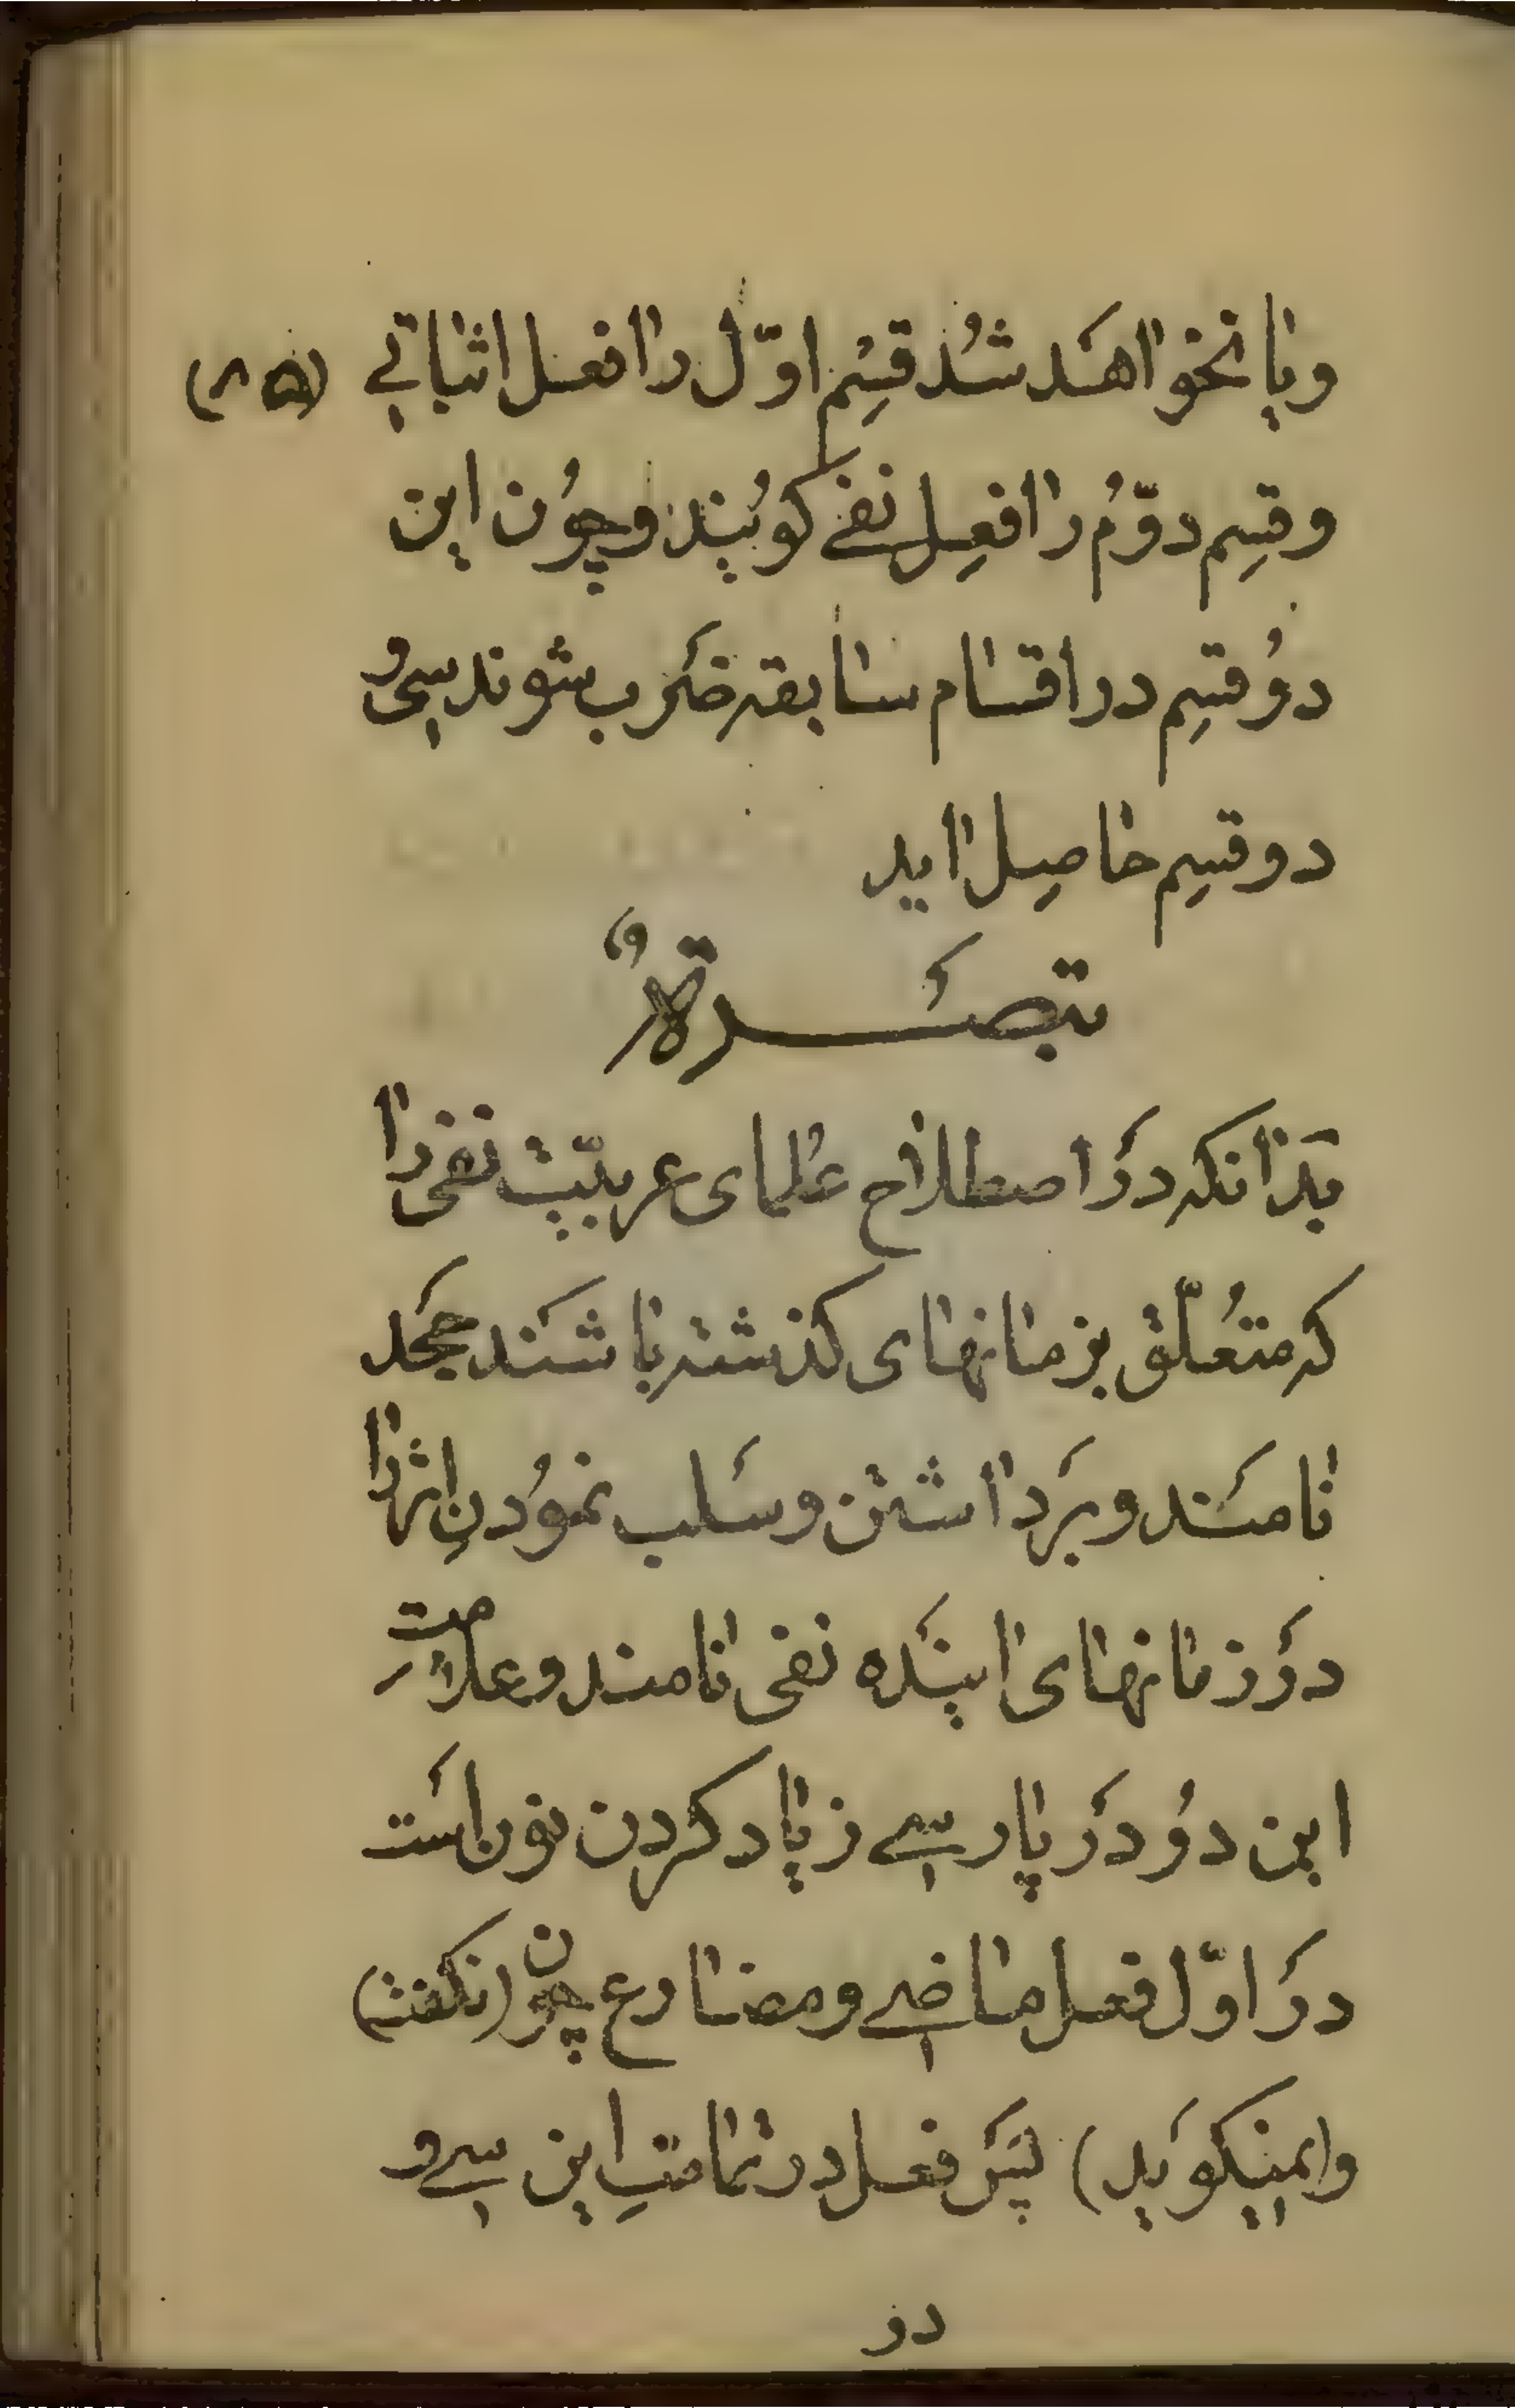 ویا نخواهَد شُد قِسْم اوّل را فعل اثباتیِ (۸۵)
وقِسِم دوّمُ را فعِل نفی کوُیند وچوُن این
دوُ قسِم در اقسام سابقه ضَرب شوند سِی وُ
دو قسِم حاصِل اید
تبصَرةٌ
بَدانکه دَر اصطلاح عُلمای عربیّت نفی را
که متعُلّق بزمانهای کذشته باشَند جَحَد
نامَند وبَرداشتن وسَلب نموُدنِ اثر را
دَر زمانهای اینَده نفی نامند وعلامتِ
این دوُ دَر پارسیِ زیاد کردن نون اسَت
دَر اوّل فعل ماضیِ ومضارع چون (نکفت)
و(نمیکویَد) پَس فعل در تمامتِ این سیِ و
دو